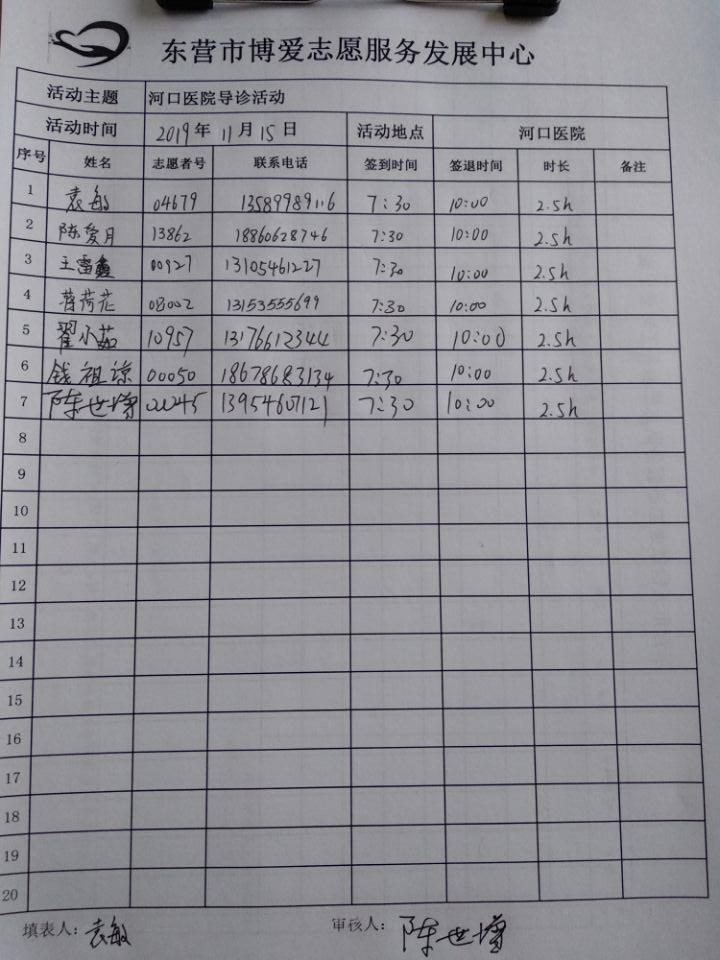 东营市博爱志愿服务发展中心
活动主题 河口医院导诊活动
活动时间 2019年 11月 15日 活动地点 河口医院
序号 姓名 志愿者号 联系电话 签到时间 签退时间 时长 备注
1 袁敏 04679 13589989116 7:30 10:00 2.5h
2 陈爱月 13862 18860628746 7:30 10:00 2.5h
3 王雷鑫 00927 13105461227 7:30 10:00 2.5h
4 荷花 08002 13153555699 7:30 10:00 2.5h
5 翟小茹 10957 13176612344 7:30 10:00 2.5h
6 钱祖谅 00050 18678683134 7:30 10:00 2.5h
7 陈世增 00045 13954607121 7:30 10:00 2.5h
8
9
10
11
12
13
14
15
16
17
18
19
20
填表人：袁敏 审核人：陈世增